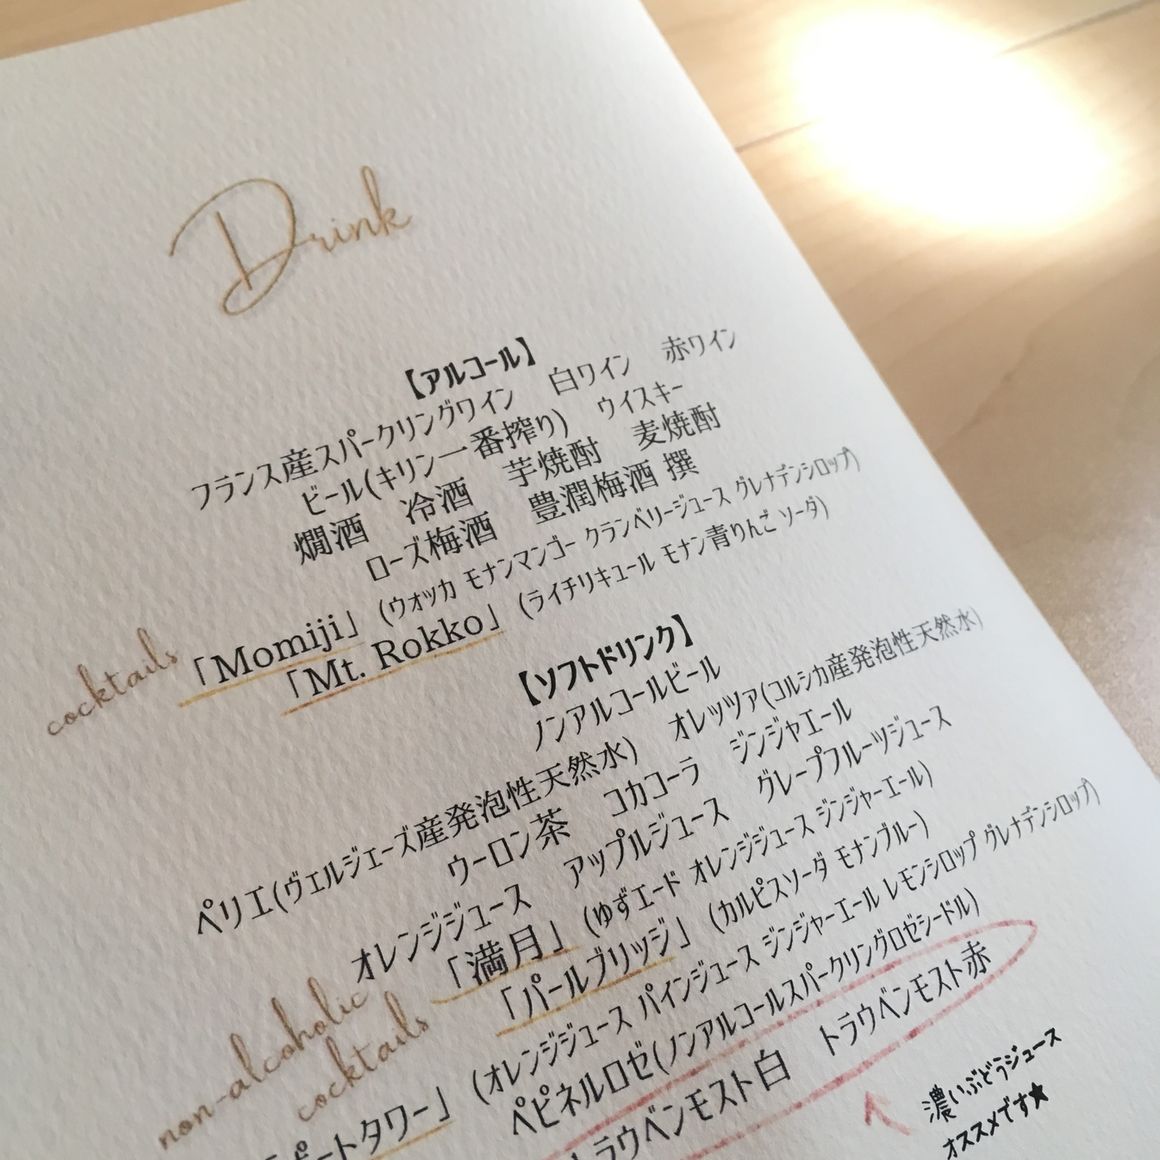 Drink
【アルコール】
フランス産スパークリングワイン 白ワイン 赤ワイン
ビール(キリン一番搾り) ウイスキー
燗酒 冷酒 芋焼酎 麦焼酎
ローズ梅酒 豊潤梅酒 撰
cocktails
「Momiji」(ウォッカ モナンマンゴー クランベリージュース グレナデンシロップ)
「Mt. Rokko」(ライチリキュール モナン青りんご ソーダ)
【ソフトドリンク】
ノンアルコールビール
ペリエ(ヴェルジェーズ産発泡性天然水) オレッツァ(コルシカ産発泡性天然水)
ウーロン茶 コカコーラ ジンジャエール
オレンジジュース アップルジュース グレープフルーツジュース
non-alcoholic
cocktails
「満月」(ゆずエード オレンジジュース ジンジャーエール)
「パールブリッジ」(カルピスソーダ モナンブルー)
ポートタワー」(オレンジジュース パインジュース ジンジャーエール レモンシロップ グレナデンシロップ)
ペピネルロゼ(ノンアルコールスパークリングロゼシードル)
トラウベンモスト白 トラウベンモスト赤
濃いぶどうジュース
オススメです★